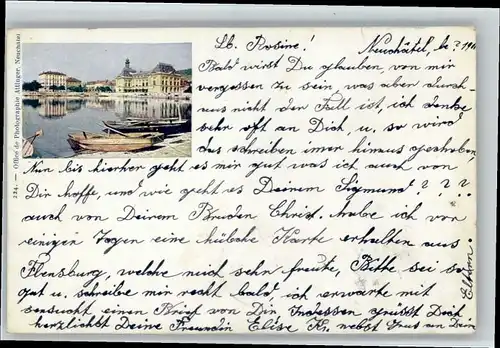 Lb. Rosine!
Neuchâtel, le ? 190
Bald wirst Du glauben, von mir
vergessen zu sein, was aber durch-
aus nicht der Fall ist, ich denke
sehr oft an Dich, u. so wird
das schreiben imer hinaus geschoben.
Nun bis hierher geht es mir gut was ich auch von
Dir hoffe, und wie geht es Deinem Sigmund? ? ?
auch von Deinem Bruder Christ. habe ich vor
einigen Tagen eine hübsche Karte erhalten aus
Flensburg, welche mich sehr freute, Bitte sei so
gut u. schreibe mir recht bald, ich erwarte mit
sehnsucht einen Brief von Dir Indessen grüsst Dich
herzlichst Deine Freundin Elise Kr. nebst Grus an Deine
Eltern.
224. — Office de Photographie Attinger, Neuchâtel